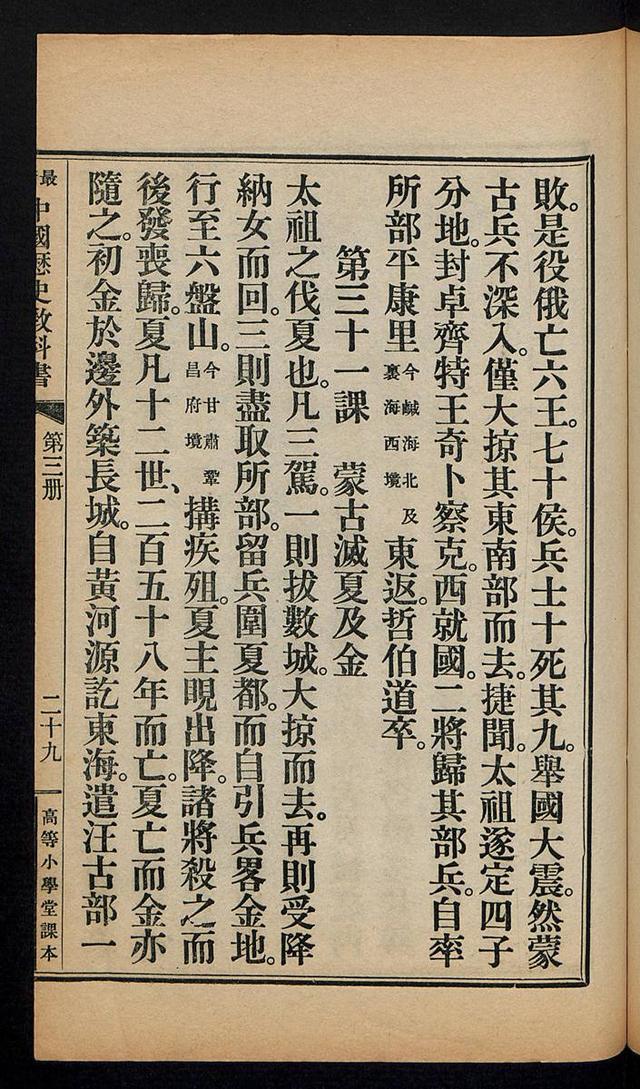 敗。是役俄亡六王。七十侯。兵士十死其九。舉國大震。然蒙
古兵不深入。僅大掠其東南部而去。捷聞。太祖遂定四子
分地。封卓齊特王奇卜察克。西就國。二將歸其部兵。自率
所部平康里今鹹海北及裏海西境東返。哲伯道卒。
第三十一課　蒙古滅夏及金
太祖之伐夏也。凡三駕。一則拔數城。大掠而去。再則受降
納女而回。三則盡取所部。留兵圍夏都。而自引兵畧金地。
行至六盤山。今甘肅鞏昌府境搆疾殂。夏主晛出降。諸將殺之而
後發喪歸。夏凡十二世、二百五十八年而亡。夏亡而金亦
隨之。初金於邊外築長城。自黃河源訖東海。遣汪古部一
最中國歷史教科書　第三册　二十九　高等小學堂課本